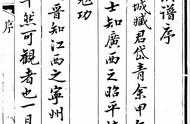 譜序
城臧君岱青余甲
士知廣西之昭平
冠功
晉知江西之寧州
然可觀者也一日
序